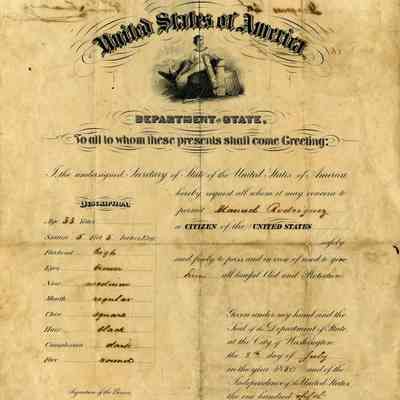 United States of America,
DEPARTMENT OF STATE,
To all to whom these presents shall come Greeting:
I the undersigned Secretary of State of the United States of America
hereby request all whom it may concern to
permit Manuel Rodriguez
a CITIZEN of the UNITED STATES
safely
and freely to pass and in case of need to give
him all lawful Aid and Protection
DESCRIPTION,
Age 33 Years
Stature 5 Feet Inches Eng.
Forehead high
Eyes brown
Nose medium
Mouth regular
Chin square
Hair black
Complexion dark
Face round
Signature of the Bearer,
Given under my hand and the
Seal of the Department of State
at the City of Washington
the day of July
in the year 1880 and of the
Independence of the United States
the one hundred and fifth